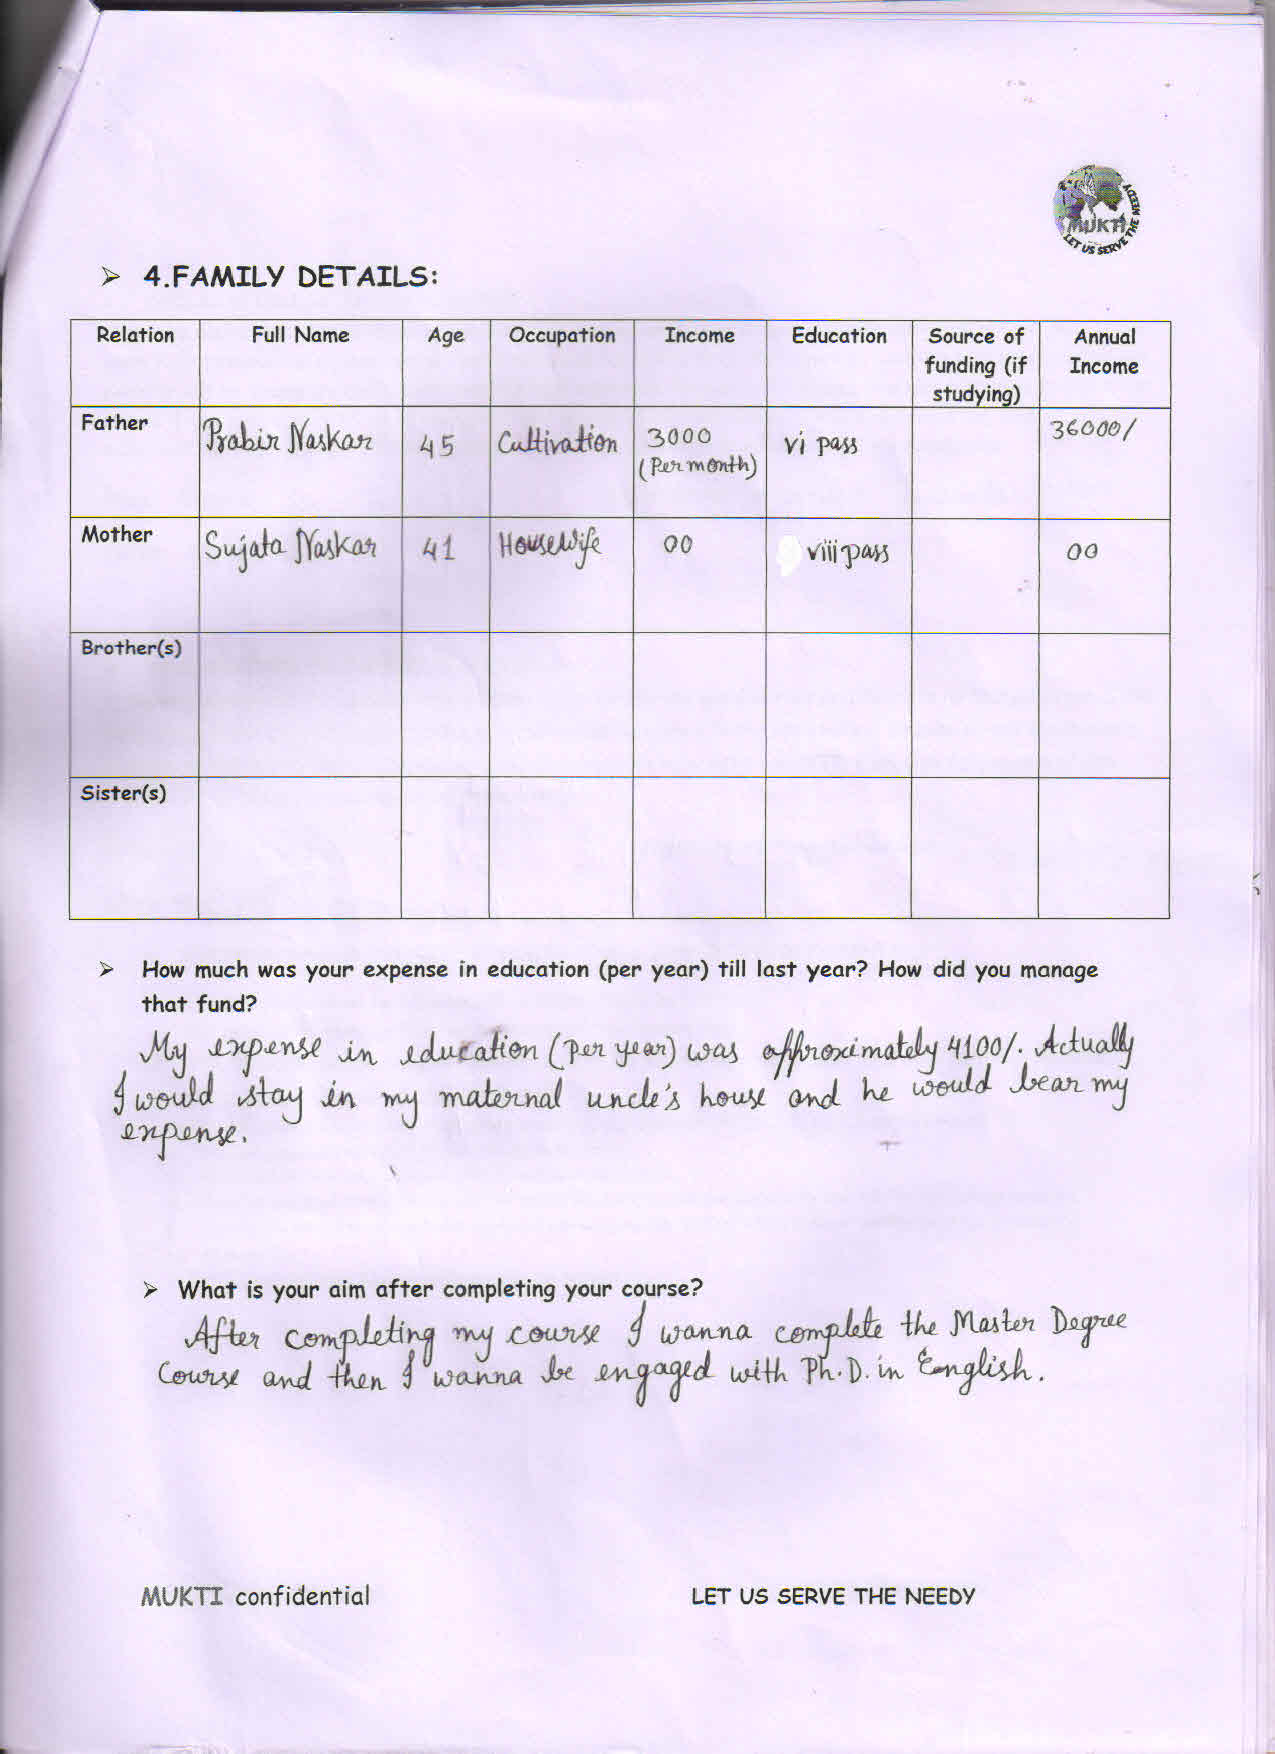 MUKTI
LET US SERVE THE NEEDY
➢ 4.FAMILY DETAILS:
Relation Full Name Age Occupation Income Education Source of funding (if studying) Annual Income
Father Prabir Naskar 45 Cultivation 3000 (Per month) vi pass 36000/
Mother Sujata Naskar 41 Housewife 00 viii pass 00
Brother(s)
Sister(s)
➢ How much was your expense in education (per year) till last year? How did you manage
that fund?
My expense in education (per year) was approximately 4100/. Actually
I would stay in my maternal uncle's house and he would bear my
expense.
➢ What is your aim after completing your course?
After completing my course I wanna complete the Master Degree
Course and then I wanna be engaged with Ph.D. in English.
MUKTI confidential LET US SERVE THE NEEDY